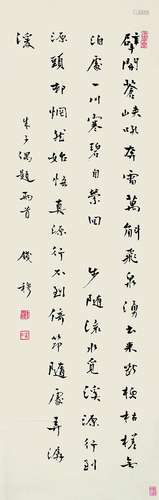 擘開蒼峽吼奔雷萬斛飛泉湧出來斷梗枯槎無
泊處一川寒碧自縈回 步隨流水覓溪源行到
源頭却惘然始悟真源行不到倚笻隨處弄潺
湲
朱子偶題兩首 錢穆